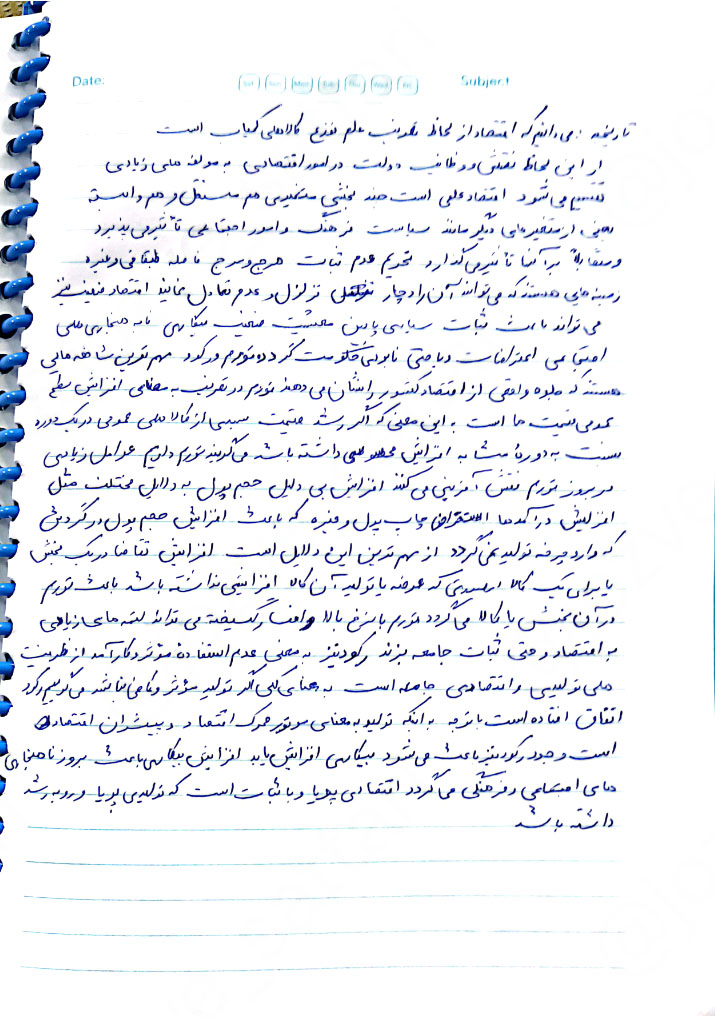 Date: Sat Sun Mon Tue Thu Wed Fri Subject
تاریخچه: می دانیم که اقتصاد از لحاظ تعریف علم توزیع کالاهای کمیاب است
از این لحاظ نقش و وظایف دولت در امور اقتصادی به مولفه های زیادی
تقسیم می شود اقتصاد علمی است چند بخشی متغییری هم مستقل و هم وابسته
یعنی از متغیرهای دیگر مانند سیاست فرهنگ و امور اجتماعی تأثیر می پذیرد
و متقابلاً بر آنها تأثیر می گذارد تحریم عدم ثبات هرج و مرج فاصله طبقاتی و غیره
زمینه هایی هستند که می توانند آن را دچار تزلزل و عدم تعادل نمایند اقتصاد ضعیف نیز
می تواند باعث ثبات سیاسی پایین معیشت ضعیف بیکاری نابه هنجاری های
اجتماعی اعتراضات و یا حتی نابودی حکومت گردد تورم و رکود مهم ترین شاخصه هایی
هستند که جلوه واقعی از اقتصاد کشور را نشان می دهند تورم در تعریف به معنای افزایش سطح
عمومی قیمت ها است به این معنی که اگر رشد قیمت سبدی از کالاهای عمومی در یک دوره
نسبت به دورهٔ مشابه افزایش محسوسی داشته باشد می گویند تورم داریم عوامل زیادی
در بروز تورم نقش آفرینی می کنند افزایش بی دلیل حجم پول به دلایل مختلف مثل
افزایش درآمدها استقراض چاپ پول و غیره که باعث افزایش حجم پول در گردش
که وارد چرخه تولید نمی گردد از مهم ترین این دلایل است افزایش تقاضا در یک بخش
یا برای یک کالا در صورتی که عرضه یا تولید آن کالا افزایشی نداشته باشد باعث تورم
در آن بخش یا کالا می گردد تورم با نرخ بالا و افسارگسیخته می تواند لطمه های زیادی
به اقتصاد و حتی ثبات جامعه بزند رکود نیز به معنی عدم استفاده مؤثر و کارآمد از ظرفیت
های تولیدی و اقتصادی جامعه است به معنای کلی اگر تولید مؤثر و کافی نباشد می گوییم رکود
اتفاق افتاده است با توجه به اینکه تولید به معنای موتور محرک اقتصاد و پیشران اقتصاد
است وجود رکود نیز باعث می شود بیکاری افزایش یابد افزایش بیکاری باعث بروز ناهنجاری
های اجتماعی و فرهنگی می گردد اقتصادی پویا و با ثبات است که تولیدی پویا و رو به رشد
داشته باشد